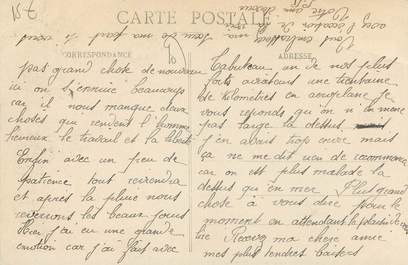 CARTE POSTALE
CORRESPONDANCE
ADRESSE
pas grand chose de nouveau
ici on s'ennuie beaucoup
car il nous manque deux
choses qui rendent l'homme
heureux le travail et la liberté
Enfin avec un peu de
patience tout reviendra
et après la pluie nous
reverrons les beaux jours
Hier j'ai eu une grande
émotion car j'ai fait avec
Tabuteau un de nos plus
forts aviateurs une trentaine
de kilomètres en aeroplane je
vous reponds qu'on n'en mène
pas large la dessus
J'en avais trop envie mais
ça ne me dit rien de recommencer
car on est plus malade la
dessus qu'en mer Plus grand
chose à vous dire pour le
moment en attendant le plaisir de vous
lire Recevez ma chere amie
mes plus tendres baisers